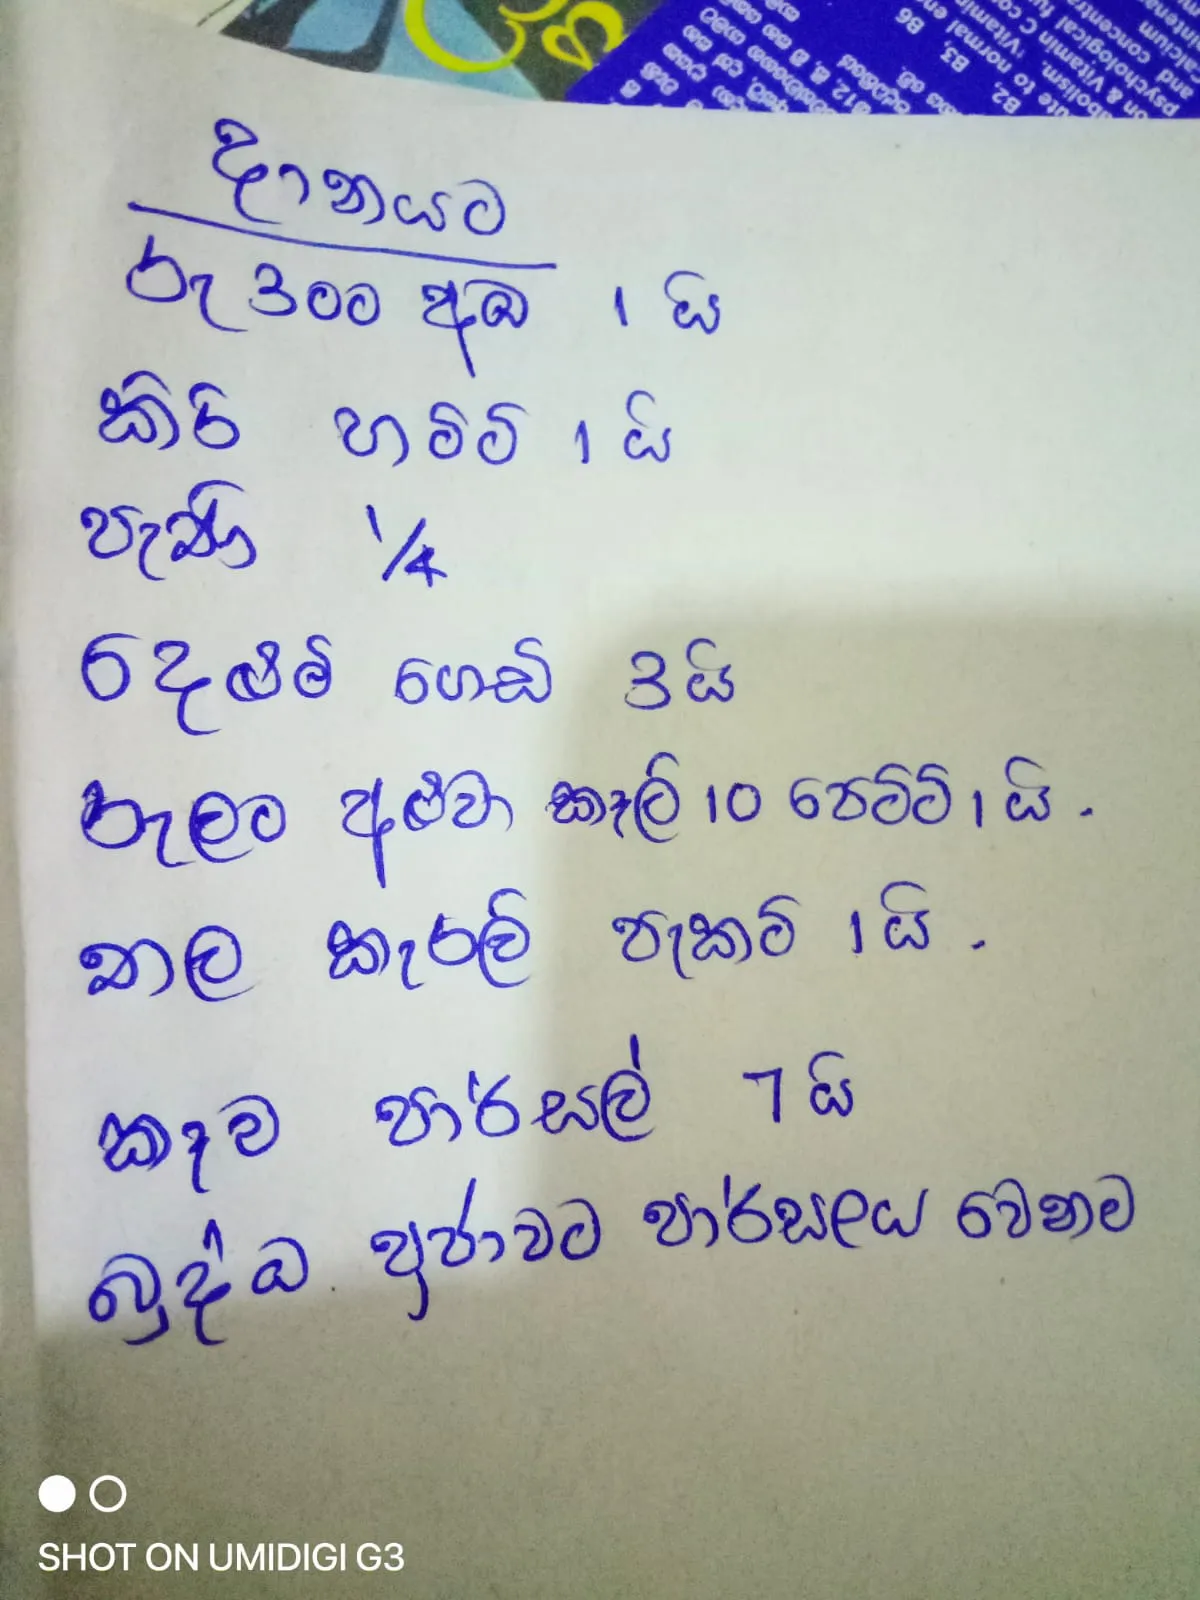 දානයට
රු 300ට අඹ 1 යි
කිරි හට්ටි 1 යි
පැණි 1/4
දෙළුම් ගෙඩි 3 යි
රුලට අළුවා කෑලි 10 පෙට්ටි 1 යි.
තල කැරලි පැකට් 1 යි.
කෑම පාර්සල් 7 යි
බුද්ධ පුජාවට පාර්සලය වෙනම
SHOT ON UMIDIGI G3